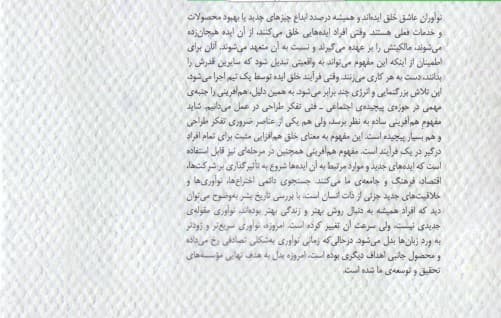 نوآوران عاشق خلق ایده‌اند و همیشه درصدد ابداع چیزهای جدید یا بهبود محصولات
و خدمات فعلی هستند. وقتی افراد ایده‌هایی خلق می‌کنند، از آن ایده هیجان‌زده
می‌شوند، مالکیتش را بر عهده می‌گیرند و نسبت به آن متعهد می‌شوند. آنان برای
اطمینان از اینکه این مفهوم می‌تواند به واقعیتی تبدیل شود که سایرین قدرش را
بدانند، دست به هر کاری می‌زنند. وقتی فرآیند خلق ایده توسط یک تیم اجرا می‌شود،
این تلاش بزرگنمایی و انرژی چند برابر می‌شود. به همین دلیل، هم‌آفرینی را جنبه‌ی
مهمی در حوزه‌ی پیچیده‌ی اجتماعی - فنی تفکر طراحی در عمل می‌دانیم. شاید
مفهوم هم‌آفرینی ساده به نظر برسد، ولی هم یکی از عناصر ضروری تفکر طراحی
و هم بسیار پیچیده است. این مفهوم به معنای خلق هم‌افزایی مثبت برای تمام افراد
درگیر در یک فرآیند است. مفهوم هم‌آفرینی همچنین در مرحله‌ای نیز قابل استفاده
است که ایده‌های جدید و موارد مرتبط به آن ایده‌ها شروع به تأثیرگذاری بر شرکت‌ها،
اقتصاد، فرهنگ و جامعه‌ی ما می‌کنند. جستجوی دائمی اختراع‌ها، نوآوری‌ها و
خلاقیت‌های جدید جزئی از ذات انسان است. با بررسی تاریخ بشر به‌وضوح می‌توان
دید که افراد همیشه به دنبال روش بهتر و زندگی بهتر بوده‌اند، نوآوری مقوله‌ی
جدیدی نیست، ولی سرعت آن تغییر کرده است. امروزه، نوآوری سریع‌تر و زودتر
به ورد زبان‌ها بدل می‌شود. درحالی‌که زمانی نوآوری به‌شکلی تصادفی رخ می‌داده
و محصول جانبی اهداف دیگری بوده است، امروزه بدل به هدف نهایی مؤسسه‌های
تحقیق و توسعه‌ی ما شده است.